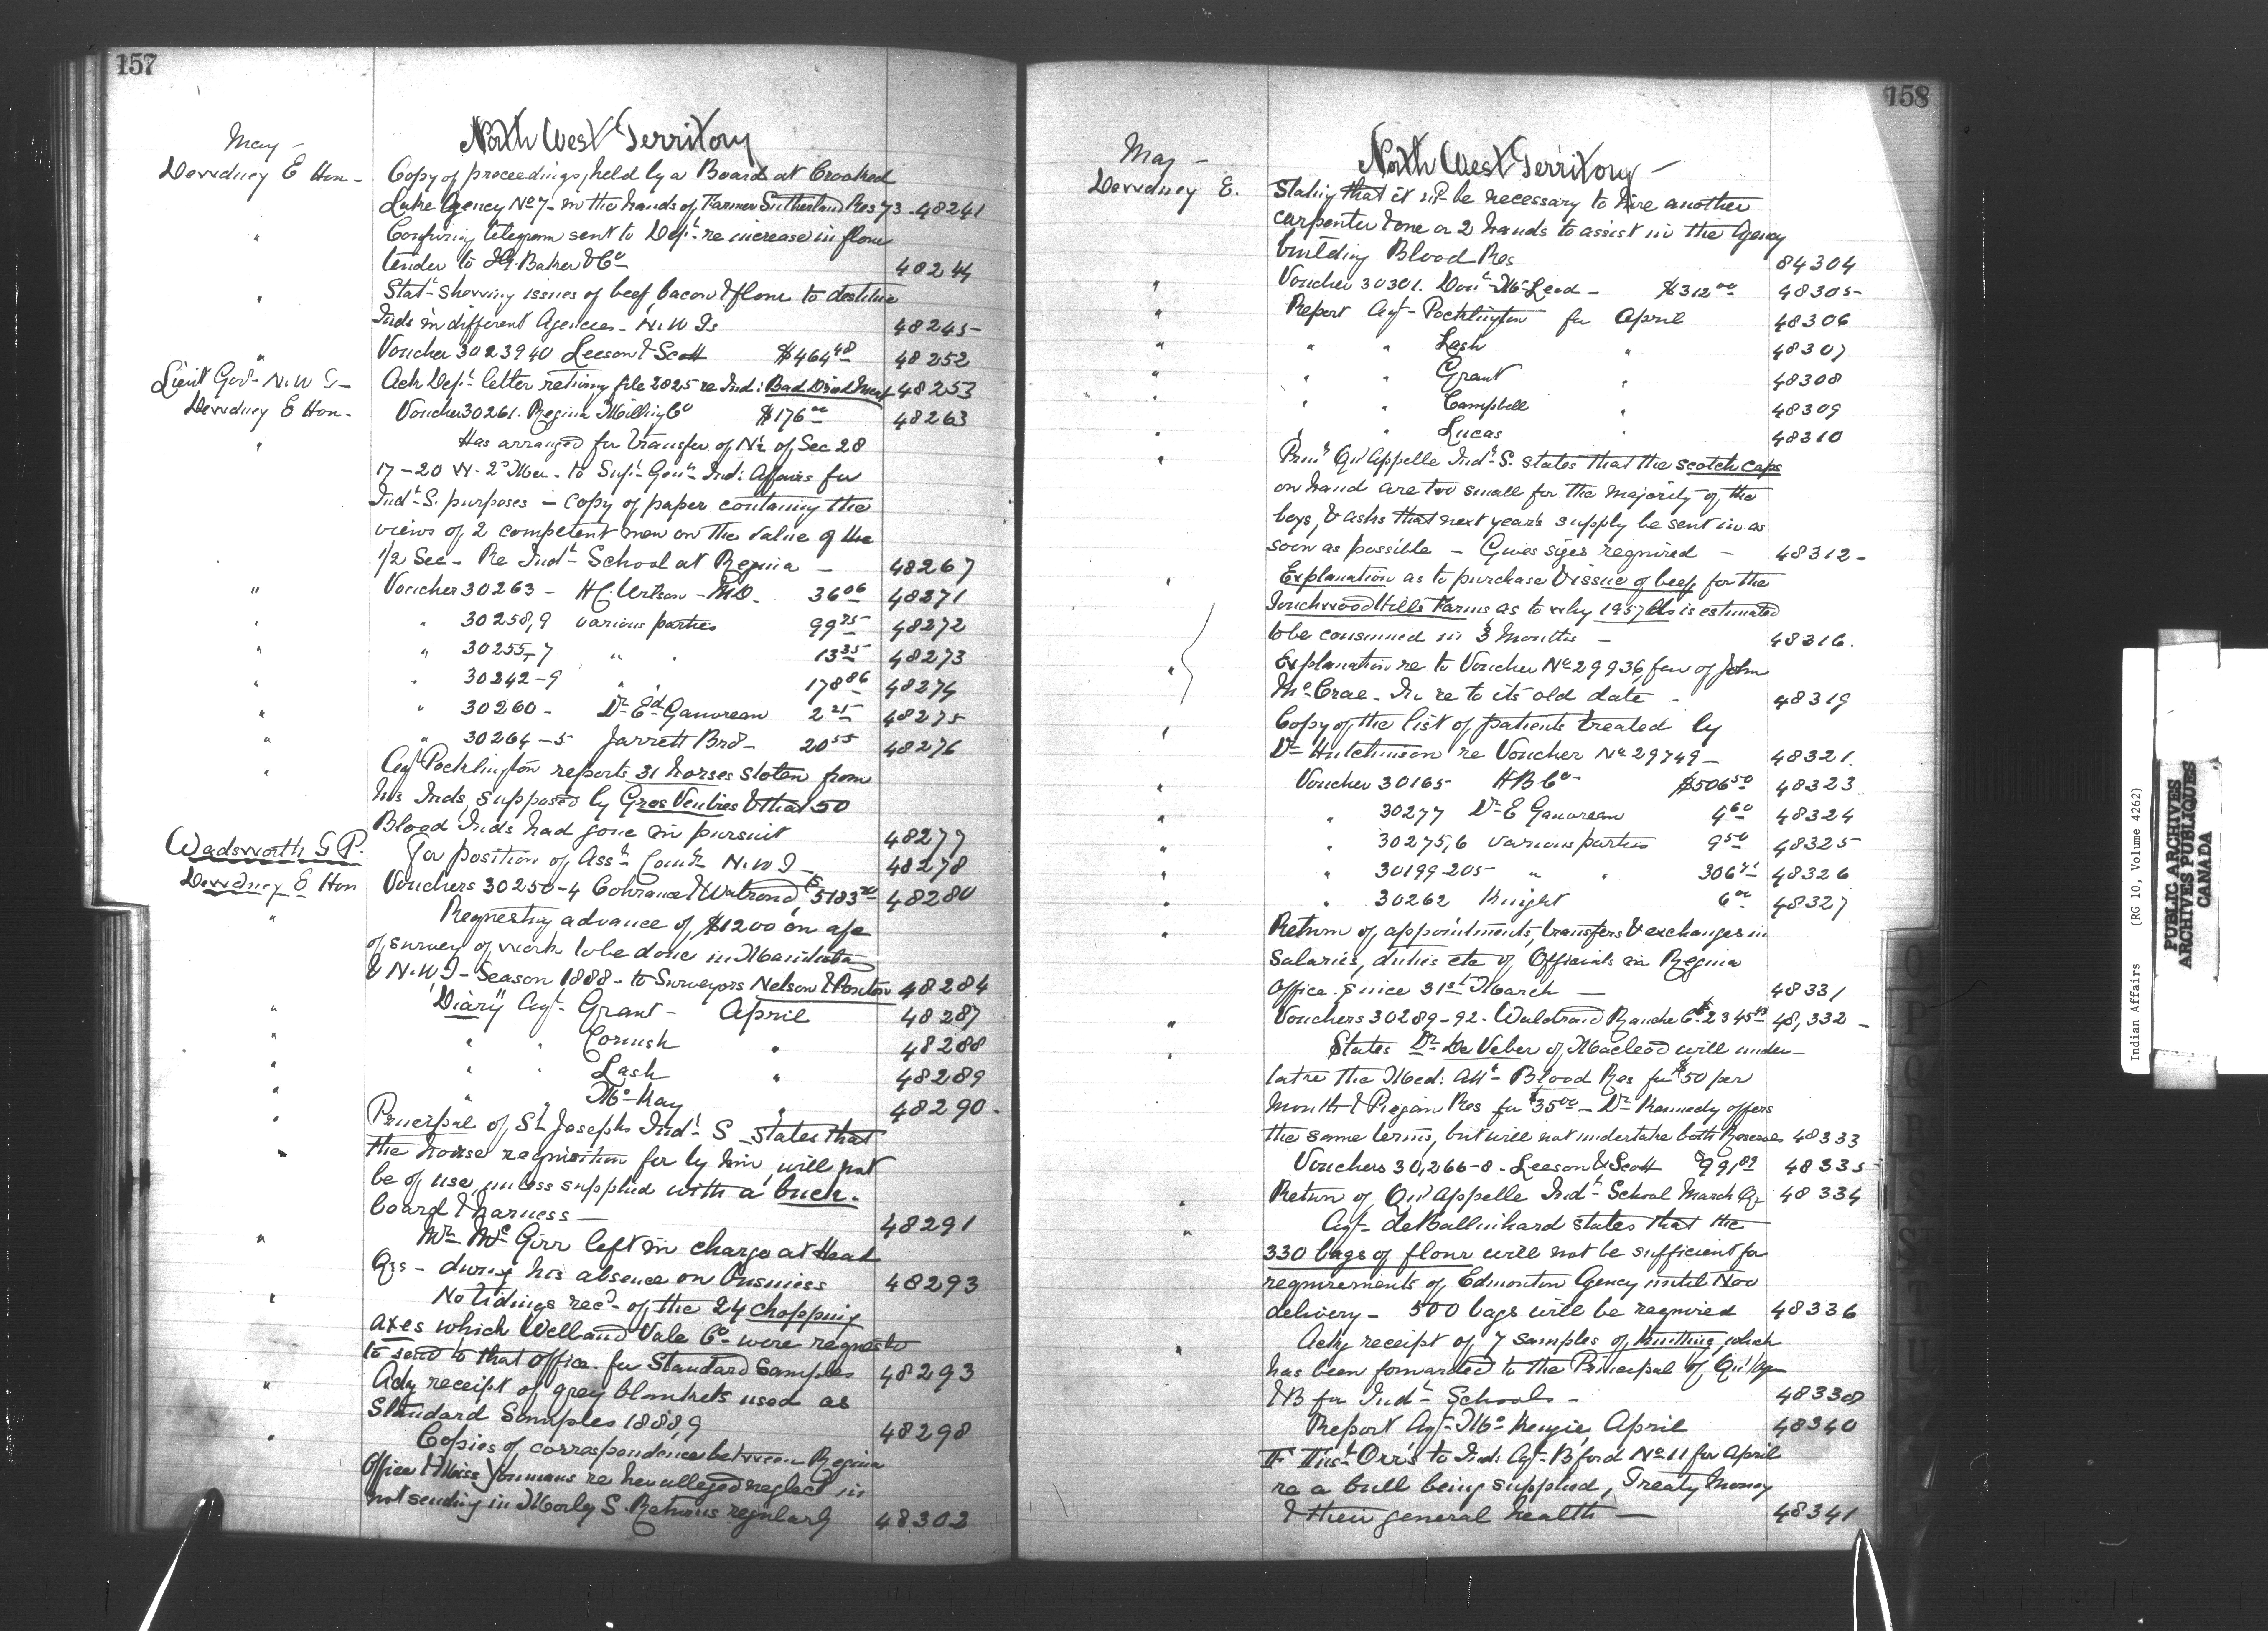 157
North West Territory
May -
Dewdney E Hon - Copy of proceedings held by a Board at Crooked
Lake Agency No 7 - in the hands of Farmer Sutherland Res 73 - 48241
" Confirming telegram sent to Dept re increase in flour
tender to I.G. Baker & Co 48244
" Statt shewing issues of beef bacon & flour to destitute
Inds in different Agencies - N.W Ts 48245-
" Voucher 3023940 Leeson & Scott $464 48 48252
Lieut Govr N.W T - Ack Dept letter returning file 2025 re Ind: Bad Dried Meat 48253
Dewdney E Hon - Voucher 30261. Regina Milling Co $176 00 48263
" Has arranged for transfer of N½ of Sec 28
17-20 W. 2d Mer - to Supt Genl Ind: Affairs for
Indl S. purposes - copy of paper containing the
views of 2 competent men on the value of the
1/2 Sec - Re Indl School at Regina - 48267
" Voucher 30263 - H.C. Wilson - M.D. 36 06 48271
" " 30258,9 various parties 99 75 48272
" " 30255-7 " " 13 35 48273
" " 30242-9 " " 178 86 48274
" " 30260 - Dr Ed Gauvreau 2 25 48275
" " 30264-5 Jarrett Bros - 20 55 48276
" Agt Pocklington reports 31 horses stolen from
his Inds, supposed by Gros Ventres & that 50
Blood Inds had gone in pursuit 48277
Wadsworth T P. For position of Asst Comr N.W T - 48278
Dewdney E Hon Vouchers 30250-4 Cohrane & Walrond $5183 20 48280
" Requesting advance of $1200 on a/c
of survey of work to be done in Manitoba
& N.W T - Season 1888 - to Surveyors Nelson & Ponton 48284
" "Diary" Agt Grant - April 48287
" " " Cornish " 48288
" " " Lash " 48289
" " " McKay " 48290 -
" Principal of St Josephs Indl S - states that
the horse requisition for by him, will not
be of use unless supplied with a buck-
board & harness - 48291
" Mr McGirr left in charge at Head
Qrs - during his absence on business 48293
" No tidings recd of the 24 chopping
axes which Welland Vale Co were requested
to send to that office for Standard Samples 48293
" Ackg receipt of grey blankets used as
Standard Samples 1888,9 48298
" Copies of correspondence between Regina
Office & Miss Youmans re her alleged neglect in
not sending in Morley S. Returns regularly 48303
158
North West Territory -
May -
Dewdney E. Stating that it will be necessary to hire another
carpenter & one or 2 hands to assist in the Agency
building Blood Res 84304
" Voucher 30301. Dont McLeod - $312 00 48305-
" Report Agt Pocklington for April 48306
" " " Lash " 48307
" " " Grant " 48308
" " " Campbell " 48309
" " " Lucas " 48310
" Prinl Qu'Appelle Indl S. states that the scotch caps
on hand are too small for the majority of the
boys, & asks that next year's supply be sent in as
soon as possible - Gives sizes required - 48312 -
" Explanation as to purchase & issue of beef for the
Touchwood Hills Farms as to why 1957 lbs is estimated
to be consumed in 3 months - 48316.
" Explanation re to Voucher No 29936, fav of John
McCrae - In re to its old date - 48319
" Copy of the list of patients treated by
Dr Hutchinson re Voucher No 29749 - 48321.
" Voucher 30165 H B Co $506 50 48323
" " 30277 Dr E Gauvreau 4 60 48324
" " 30275,6 Various parties 9 50 48325
" " 30199-205 " " 306 71 48326
" " 30262 Knight 6 00 48327
" Return of appointments, transfers & exchanges in
Salaries, duties etc of Officials in Regina
Office. since 31st March - 48331
" Vouchers 30289-92 - Waldrond Ranche Co $2345 43 48,332 -
" States Dr De Veber of Macleod will under-
take the Med: Att Blood Res for $50 per
month & Piegan Res for $35 00 - Dr Kennedy offers
the same terms, but will not undertake both Reserves 48333
Vouchers 30,266-8 - Leeson & Scott $991 89 48335
" Return of Qu'Appelle Indl School March Qr 48334
" Agt deBallinhard states that the
330 bags of flour will not be sufficient for
requirements of Edmonton Agency until Nov
delivery - 500 bags will be required 48336
" Ackg receipt of 7 samples of knitting, which
has been forwarded to the Principal of Qu'Ap
& B for Indl Schools - 48338
Report Agt McKenzie April 48340
F Inst Orr's to Ind: Agt Bford No 11 for April
re a bull being supplied, Treaty Money
& their general health - 48341
O
P
Q
R
S
T
U
Indian Affairs (RG 10, Volume 4262)
PUBLIC ARCHIVES
ARCHIVES PUBLIQUES
CANADA